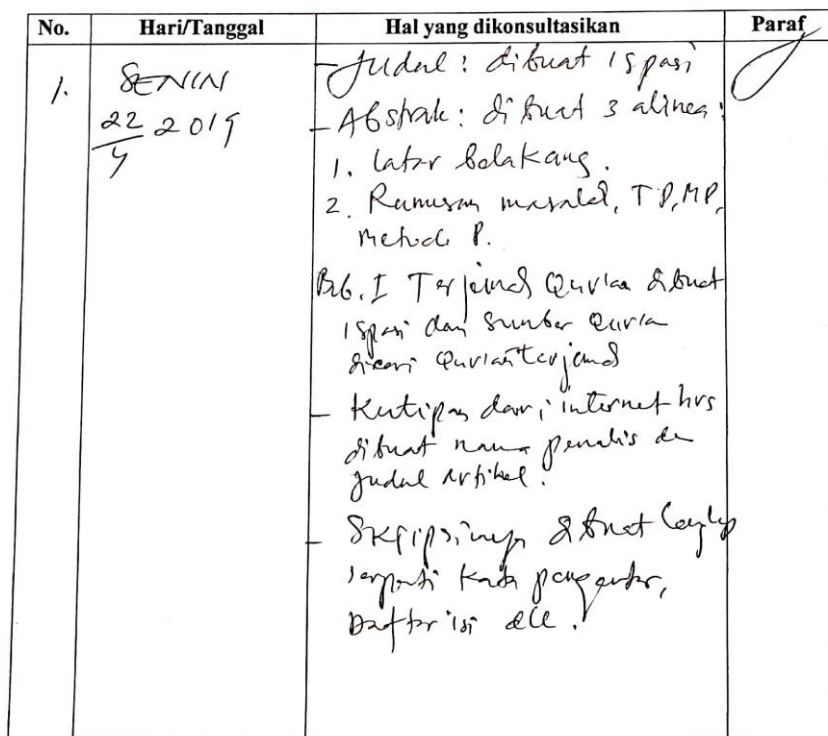 No. Hari/Tanggal Hal yang dikonsultasikan Paraf
1. SENIN 22/4 2019
- Judul : dibuat 1 spasi
- Abstrak : dibuat 3 alinea :
1. latar belakang.
2. Rumusan masalah, TP, MP,
metode P.
Bab. I Terjemah Qur'an dibuat
1 spasi dan sumber Qur'an
dicari Qur'an terjemah
- Kutipan dari internet hrs
dibuat nama penulis dan
judul artikel.
- Skripsinya dibuat lengkap
seperti kata pengantar,
Daftar isi dll.